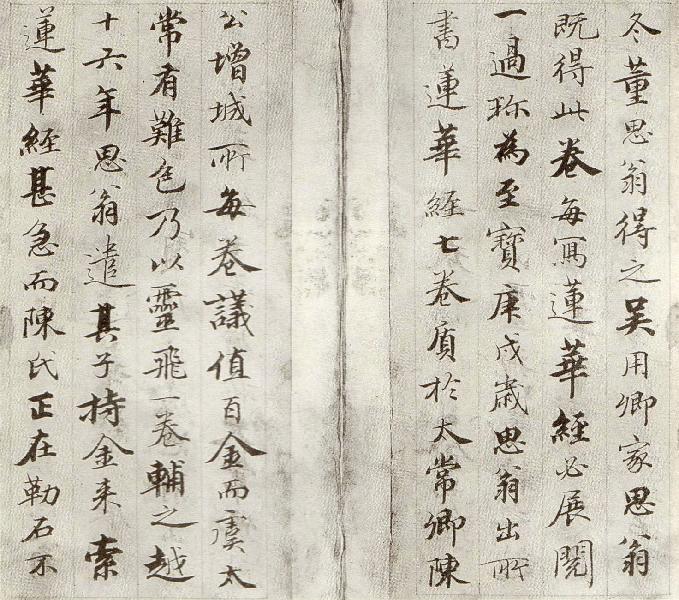 冬董思翁得之吴用卿家思翁
既得此卷每寫蓮華經必展閱
一過称為至寶庚戌歲思翁出所
書蓮華經七卷質於太常卿陳
公增城所每卷議值百金而虞太
常有難色乃以靈飛一卷輔之越
十六年思翁遣其子持金来索
蓮華經甚急而陳氏正在勒石不